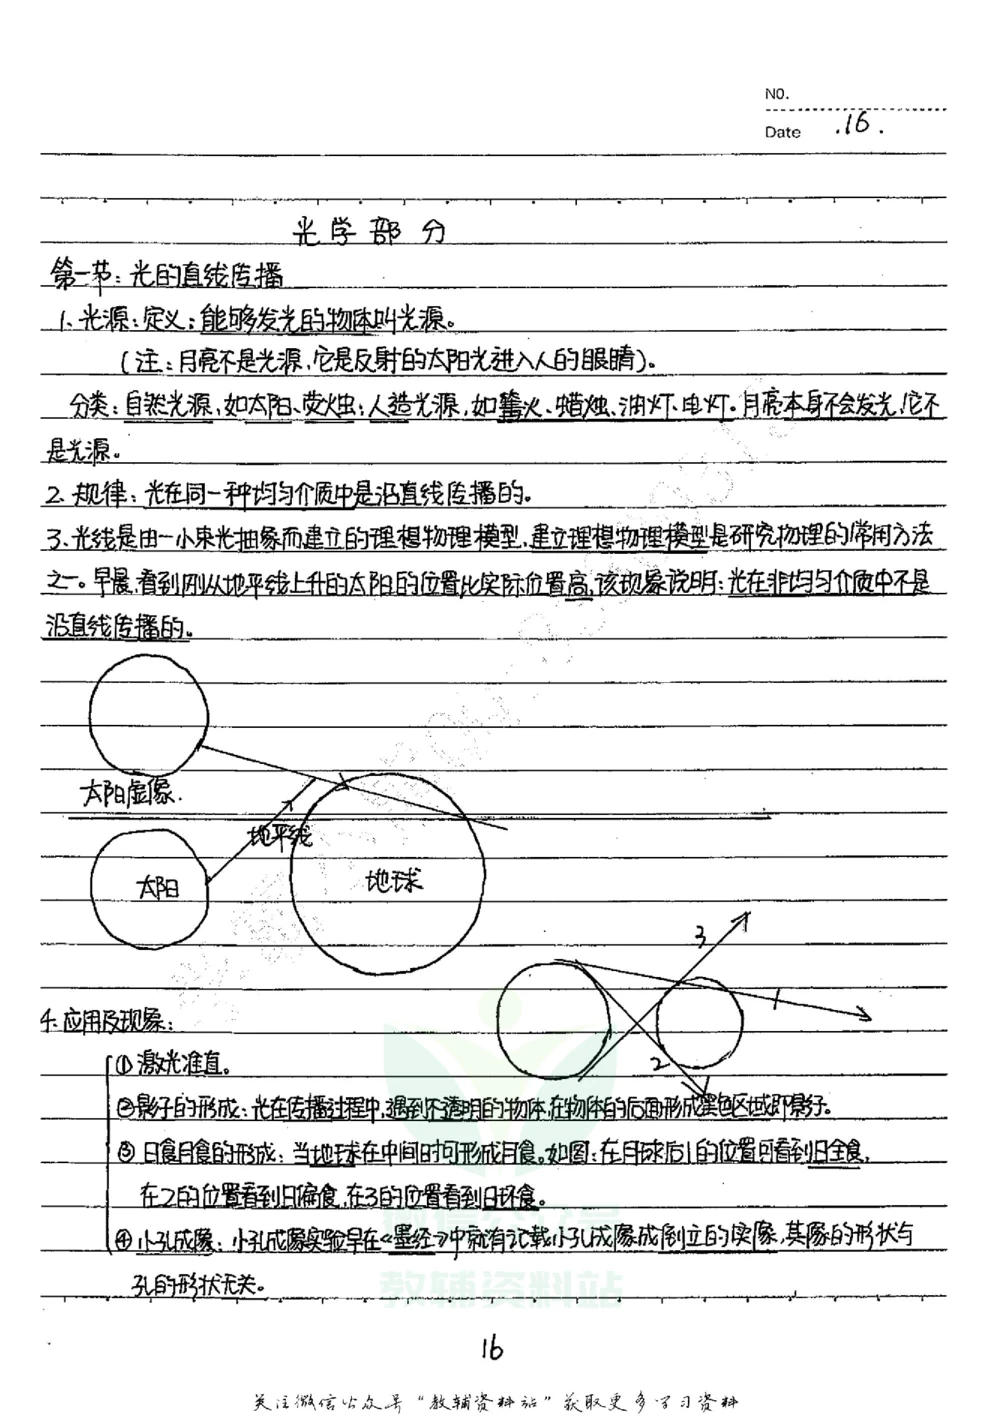 NO.
Date .16.
光学部分
第一节:光的直线传播
1、光源:定义:能够发光的物体叫光源。
(注:月亮不是光源,它是反射的太阳光进入人的眼睛)。
分类:自然光源,如太阳、萤火虫;人造光源,如篝火、蜡烛、油灯、电灯。月亮本身不会发光,它不
是光源。
2、规律:光在同一种均匀介质中是沿直线传播的。
3、光线是由一小束光抽象而建立的理想物理模型,建立理想物理模型是研究物理的常用方法
之一。早晨,看到刚从地平线上升的太阳的位置比实际位置高,该现象说明:光在非均匀介质中不是
沿直线传播的。
太阳虚像.
地平线
太阳
地球
3
1
2
4、应用及现象:
①激光准直。
②影子的形成:光在传播过程中,遇到不透明的物体,在物体的后面形成黑色区域即影子。
③日食月食的形成:当地球在中间时可形成月食。如图:在月球后1的位置可看到日全食,
在2的位置看到日偏食,在3的位置看到日环食。
④小孔成像:小孔成像实验早在《墨经》中就有记载小孔成像成倒立的实像,其像的形状与
孔的形状无关。
教辅资料站
16
关注微信公众号“教辅资料站”获取更多学习资料